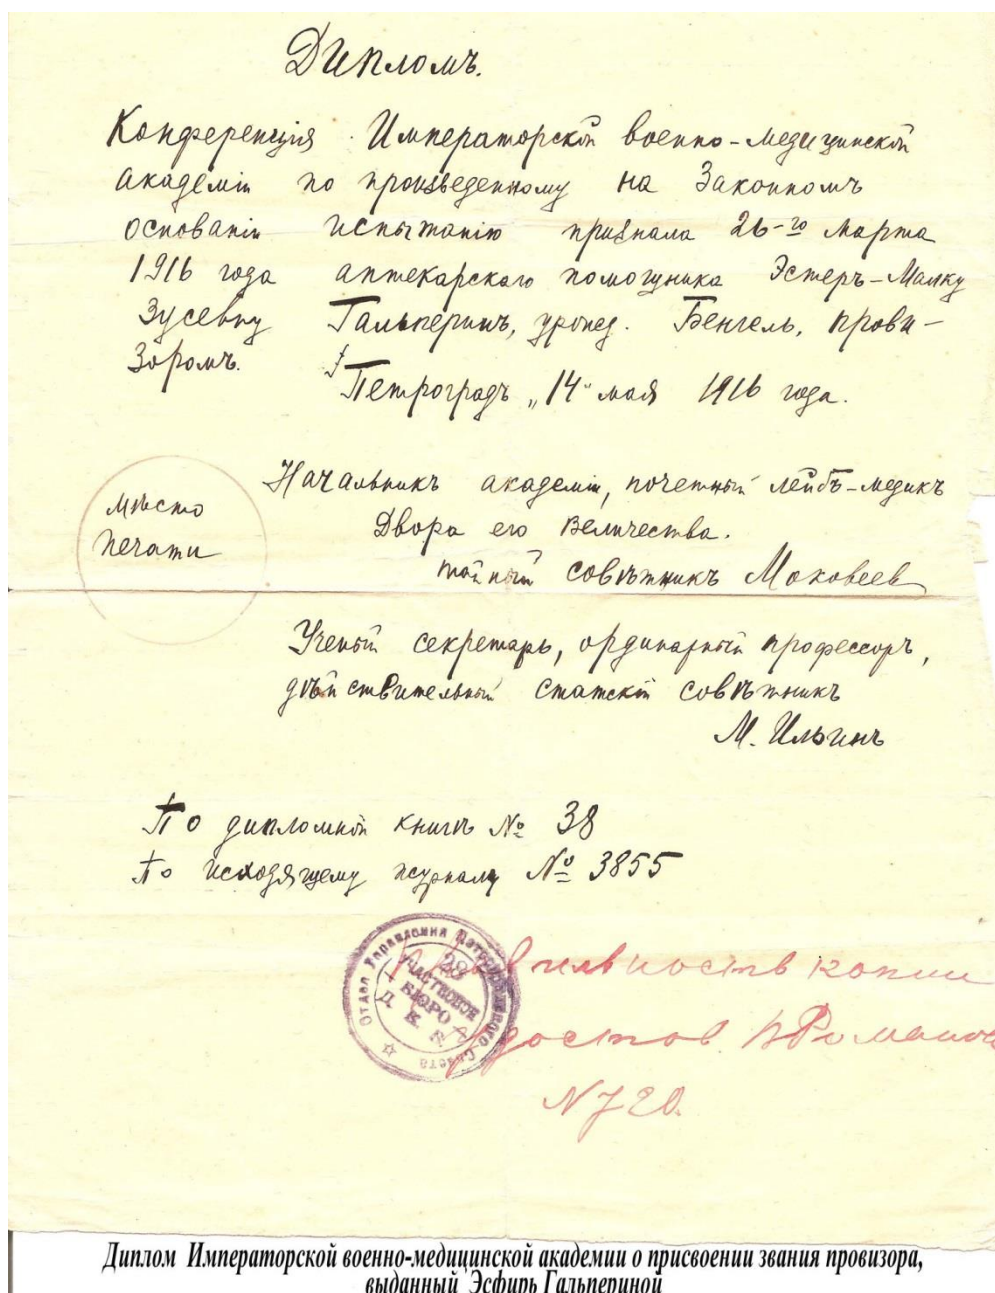 Дипломъ.
Конференція Императорской военно-медицинской
академіи по произведенному на Законномъ
основаніи испытанію признала 26-го марта
1916 года аптекарскаго помощника Эстеръ-Малку
Зусевну Гальперинъ, урожд. Бенгель, прови-
зоромъ.
Петроградъ „14" мая 1916 года.
Начальникъ академіи, почетный лейбъ-медикъ
Двора его Величества.
тайный совѣтникъ Маковеев
Мѣсто
печати
Ученый секретарь, ординарный профессоръ,
дѣйствительный статскій совѣтникъ
М. Ильинъ
По дипломной книгѣ № 38
По исходящему журналу № 3855
Отдел Управления Петроградского Совета
29
УЧАСТКОВОЕ
БЮРО
Правильность копии
удостов.
N 720.
Диплом Императорской военно-медицинской академии о присвоении звания провизора,
выданный Эсфирь Гальпериной